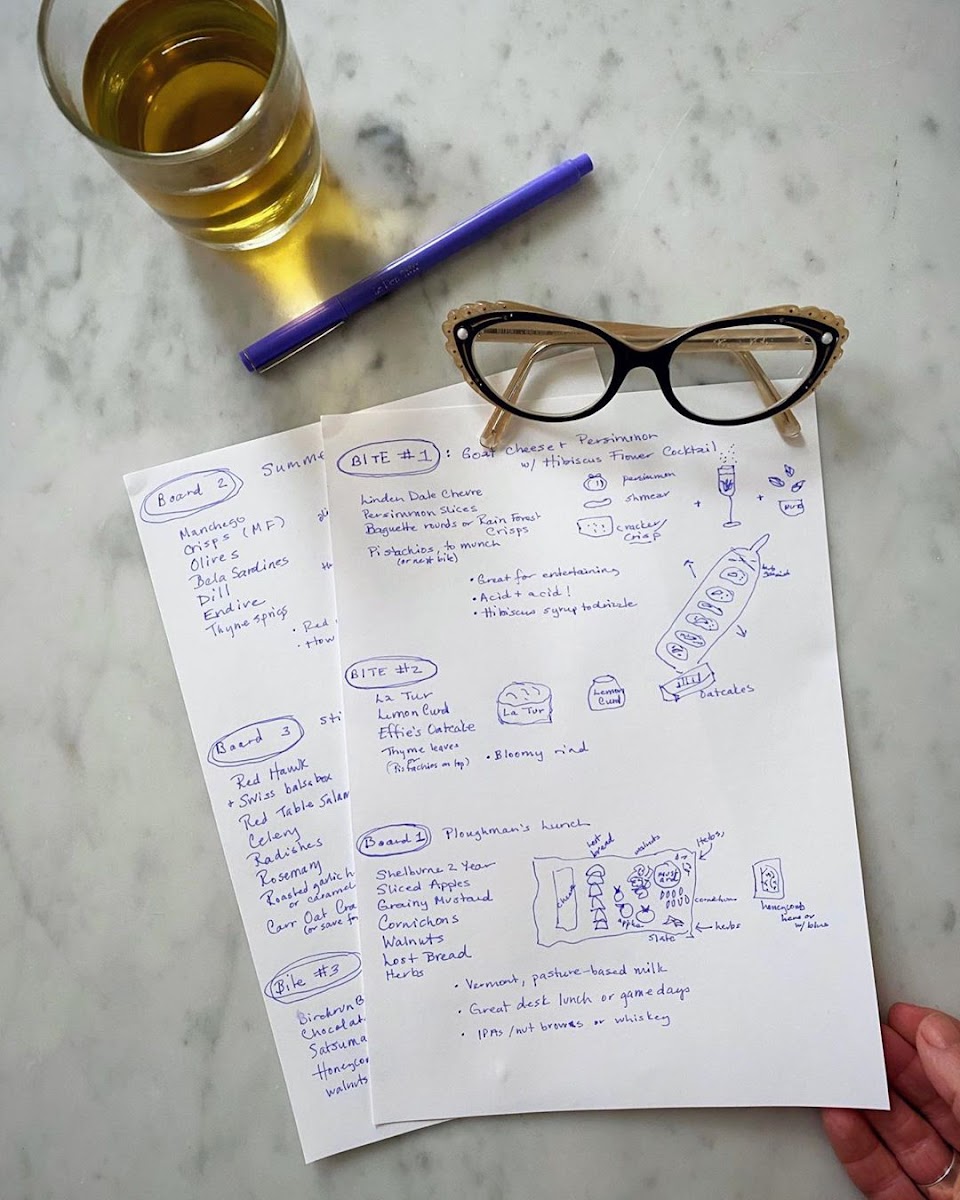 BITE #1 : Goat Cheese + Persimmon
w/ Hibiscus Flower Cocktail
Linden Dale Chevre
Persimmon Slices
Baguette rounds or Rain Forest
Crisps
Pistachios, to munch
(or next bite)
persimmon
shmear
cracker/
crisp
+
+
• Great for entertaining
• Acid + acid!
• Hibiscus syrup to drizzle
BITE #2
La Tur
Lemon Curd
Effie's Oatcake
Thyme leaves
or
(Pistachios on top)
La Tur
Lemon
Curd
oatcakes
• Bloomy rind
Board 1 Ploughman's Lunch
Shelburne 2 Year
Sliced Apples
Grainy Mustard
Cornichons
Walnuts
Lost Bread
Herbs
lost
bread
walnuts
Herbs,
cheese
must
ard
apple
slate
herbs
honeycomb
here or
w/ blue
• Vermont, pasture-based milk
• Great desk lunch or game days
• IPAs/nut browns or whiskey
Board 2 Summe
Manchego
Crisps (MF)
Olives
Bela Sardines
Dill
Endive
Thyme sprigs
• Red
• How
Board 3 sti
Red Hawk
+ Swiss balsabox
Red Table Salam
Celery
Radishes
Rosemary
Roasted garlic h
or caramel
Carr Oat Cra
(or save f
Bite #3
Birchrun B
Chocolat
Satsuma
Honeycom
walnuts